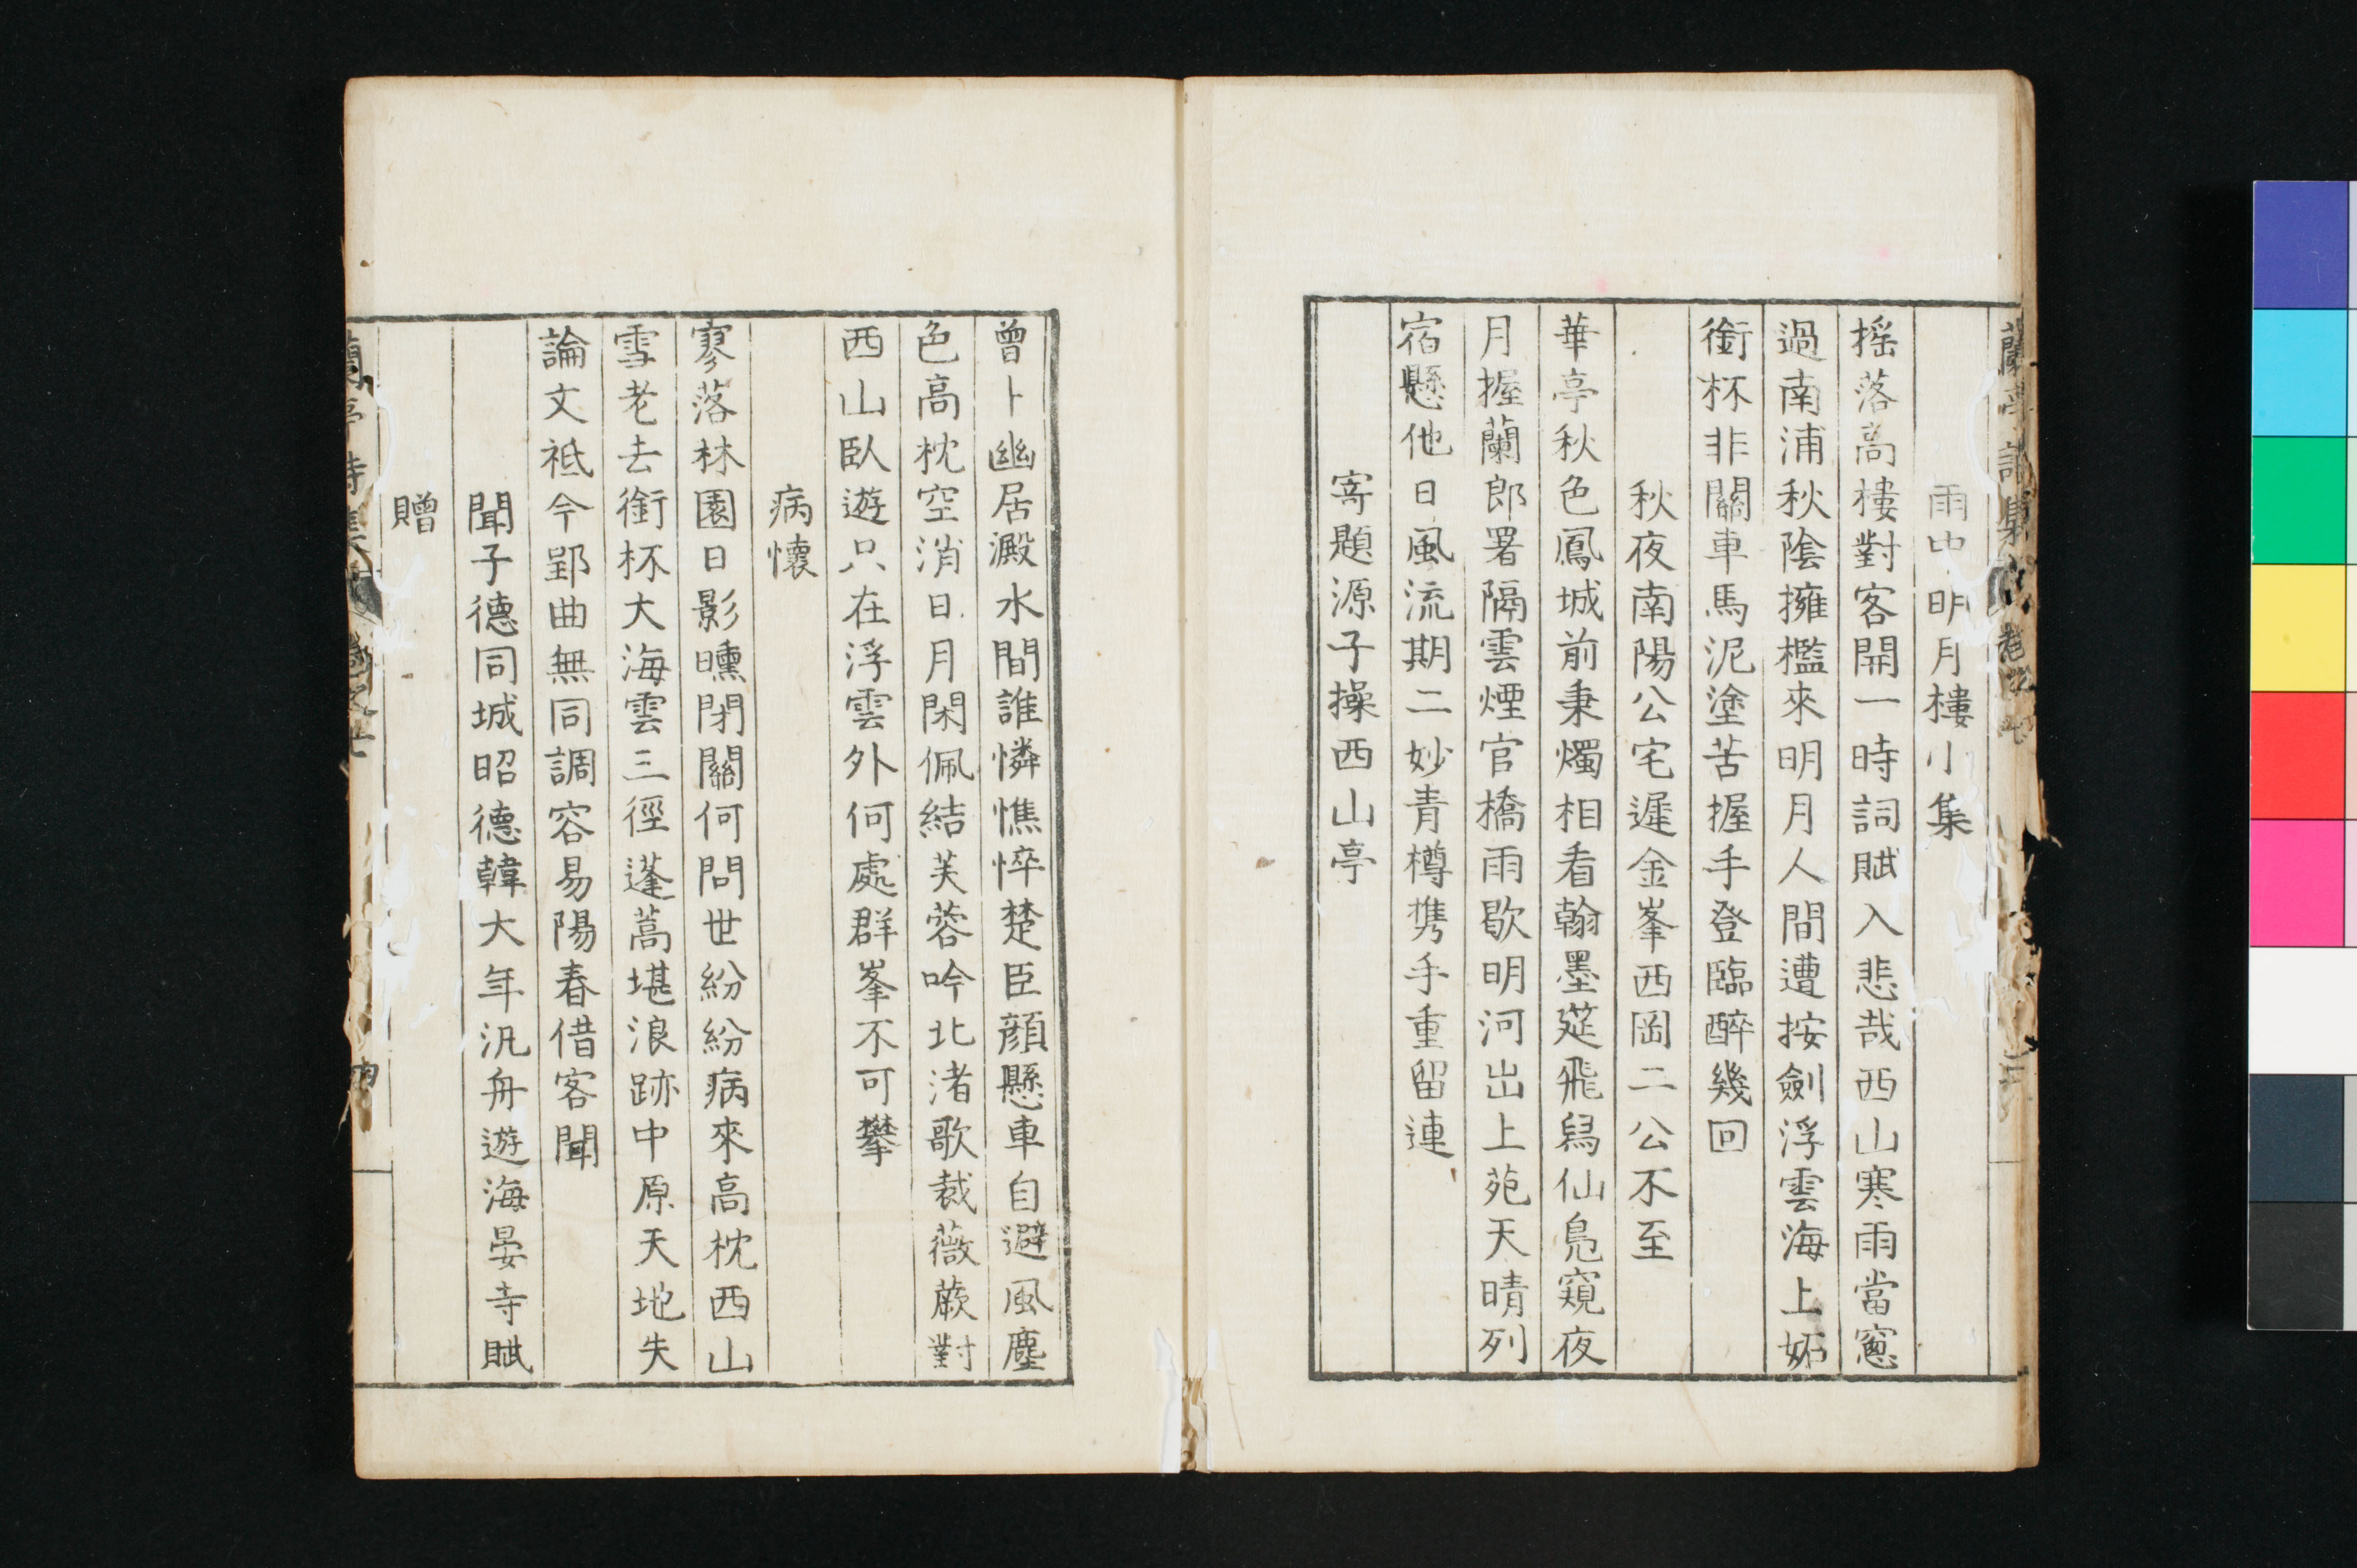 雨中明月樓小集
搖落高樓對客開一時詞賦入悲哉西山寒雨當窻
過南浦秋陰擁檻來明月人間遭按劍浮雲海上妬
銜杯非關車馬泥塗苦握手登臨醉幾回
秋夜南陽公宅遲金峯西岡二公不至
華亭秋色鳳城前秉燭相看翰墨筵飛舄仙鳧窺夜
月握蘭郎署隔雲煙官橋雨歇明河出上苑天晴列
宿懸他日風流期二妙青樽携手重留連
寄題源子操西山亭
曾卜幽居澱水間誰憐憔悴楚臣顔懸車自避風塵
色高枕空消日月閑佩結芙蓉吟北渚歌裁薇蕨對
西山臥遊只在浮雲外何處群峯不可攀
病懷
寥落林園日影曛閉關何問世紛紛病來高枕西山
雪老去銜杯大海雲三徑蓬蒿堪浪跡中原天地失
論文祗今郢曲無同調容易陽春借客聞
聞子德同城昭德韓大年汎舟遊海晏寺賦
贈